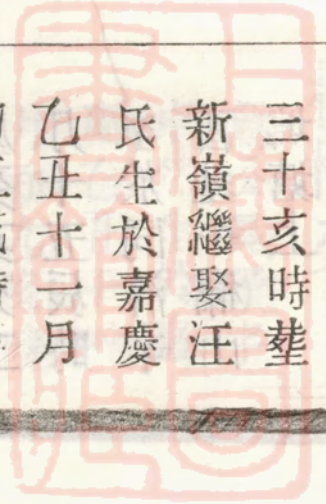 三十亥時塟
新嶺繼娶汪
氏生於嘉慶
乙丑十一月